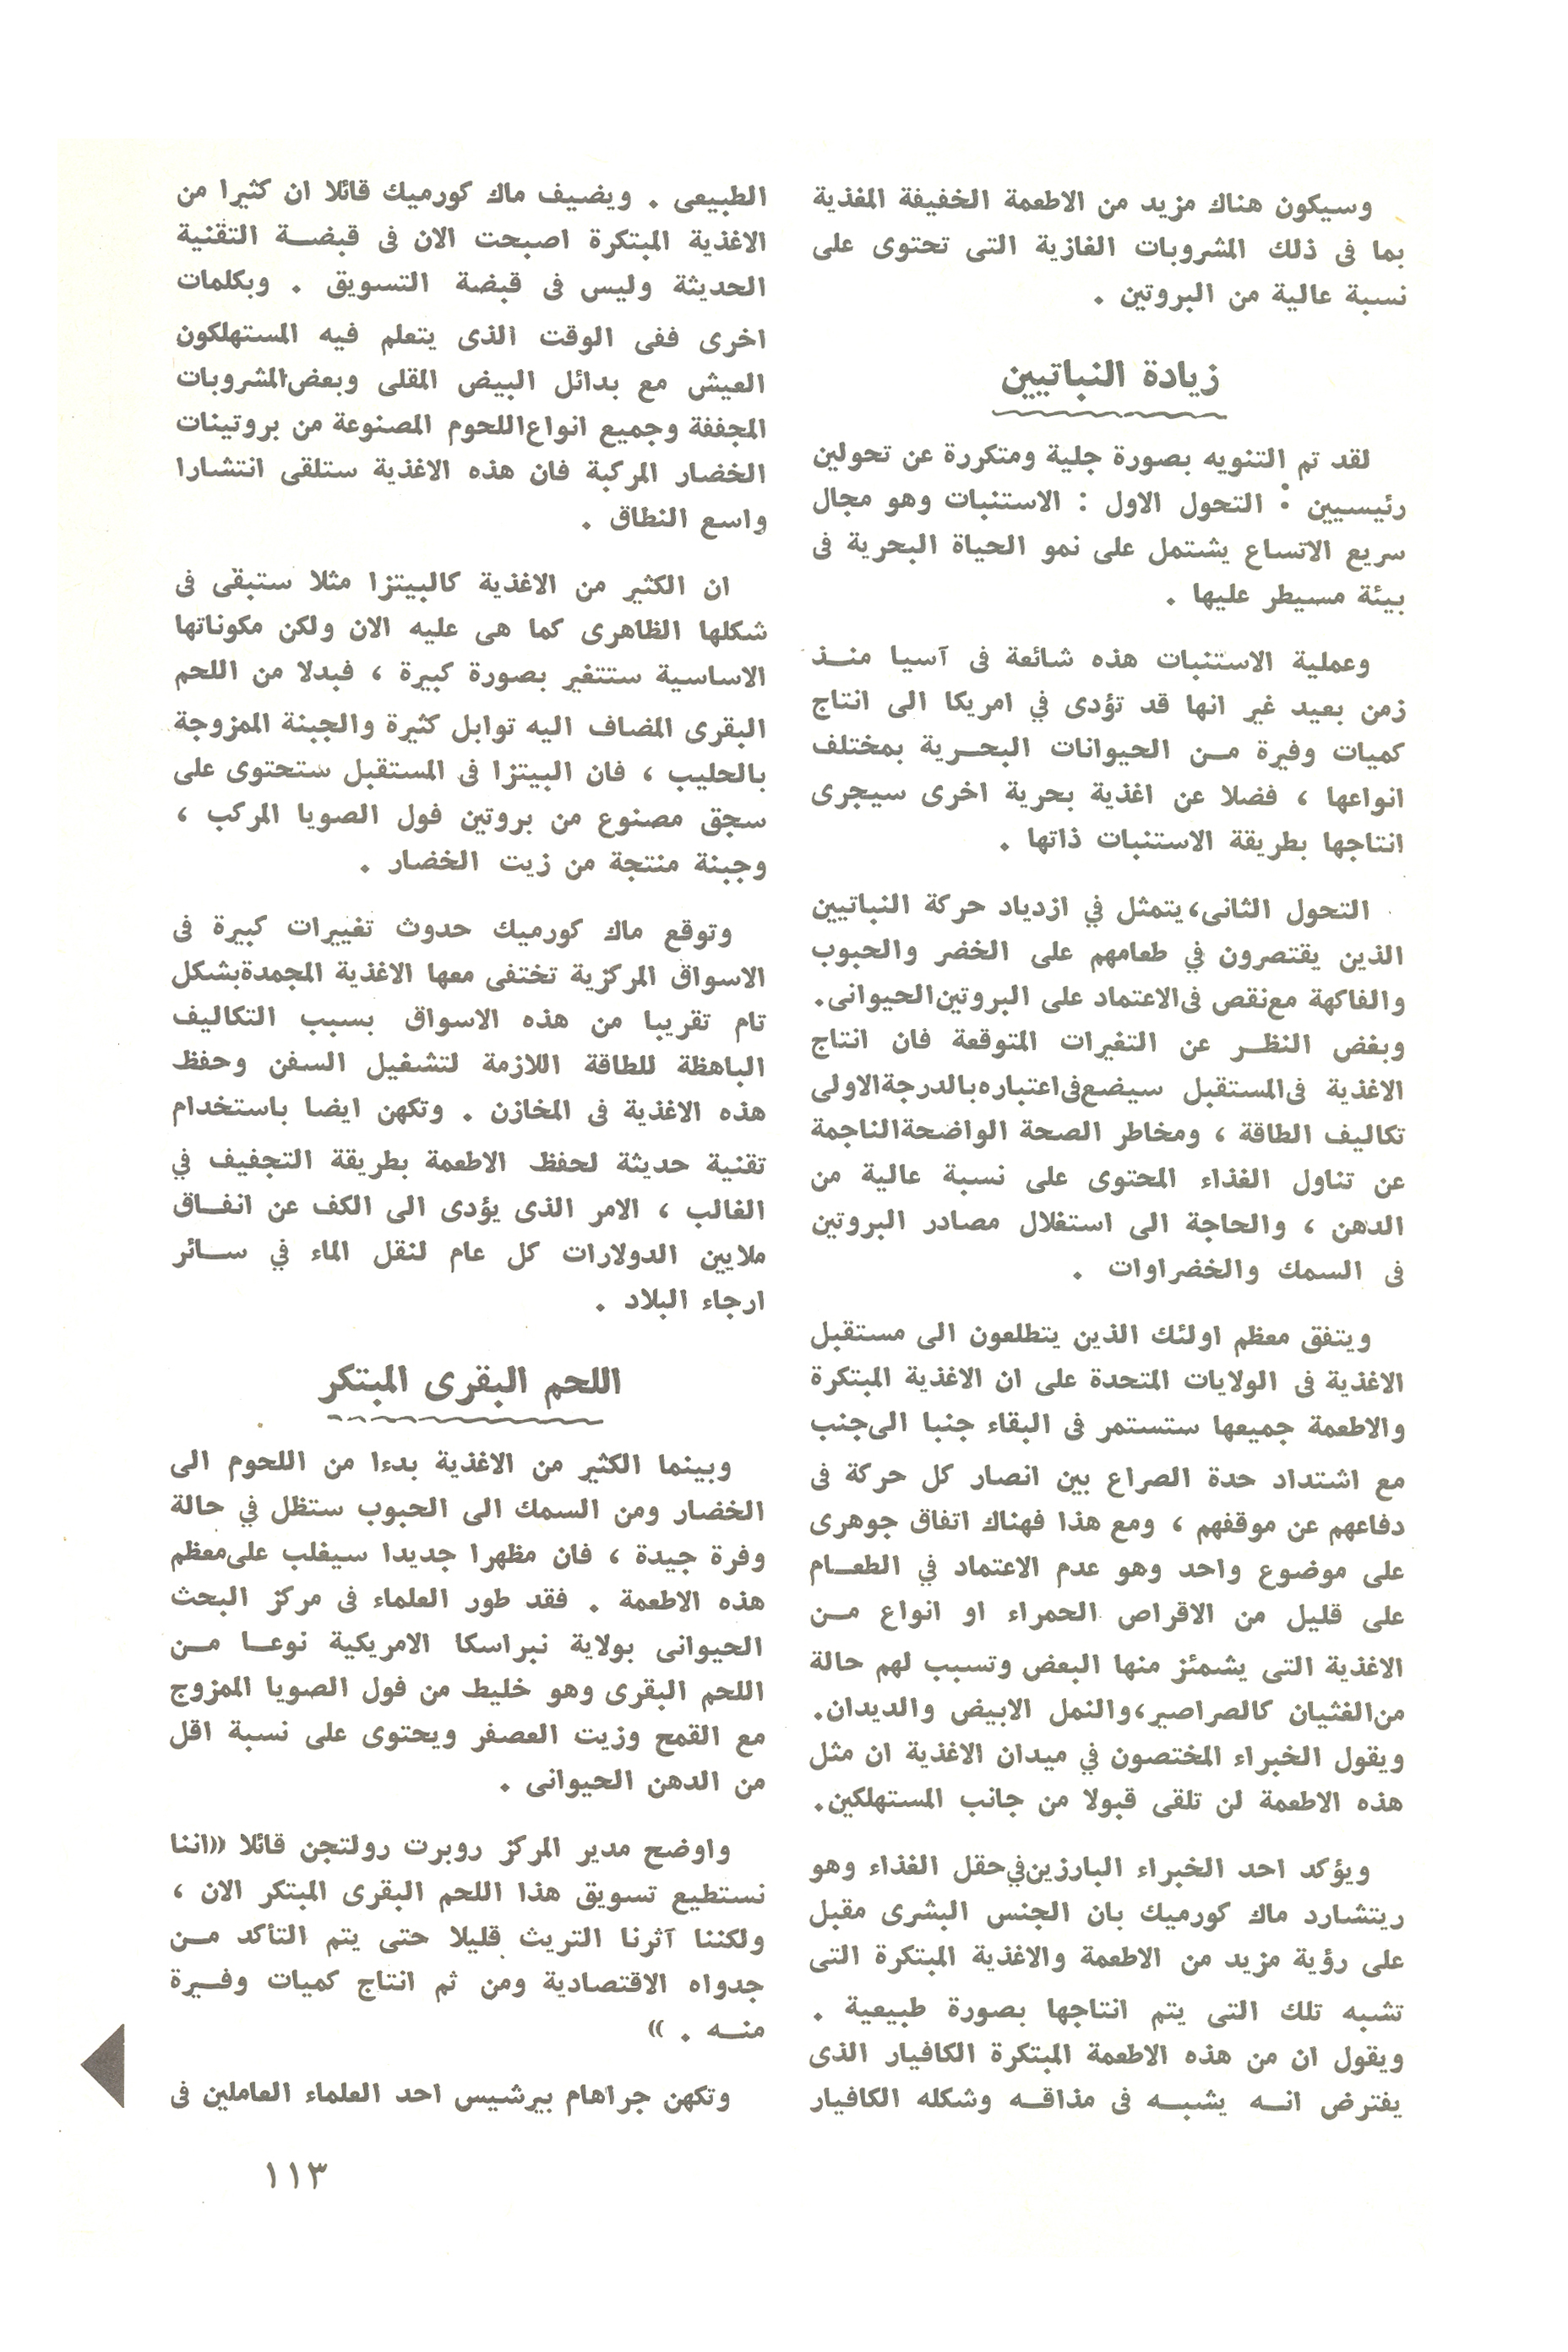 وسيكون هناك مزيد من الاطعمة الخفيفة المغذية
بما فى ذلك المشروبات الغازية التى تحتوى على
نسبة عالية من البروتين .
زيادة النباتيين
لقد تم التنويه بصورة جلية ومتكررة عن تحولين
رئيسيين : التحول الاول : الاستنبات وهو مجال
سريع الاتساع يشتمل على نمو الحياة البحرية فى
بيئة مسيطر عليها .
وعملية الاستنبات هذه شائعة فى آسيا منـذ
زمن بعيد غير انها قد تؤدى في امريكا الى انتاج
كميات وفيرة مـن الحيوانات البحـرية بمختلف
انواعها ، فضلا عن اغذية بحرية اخرى سيجرى
انتاجها بطريقة الاستنبات ذاتها .
التحول الثانى، يتمثل في ازدياد حركة النباتيين
الذين يقتصرون في طعامهم على الخضر والحبوب
والفاكهة مع نقص فى الاعتماد على البروتين الحيوانى.
وبغض النظـر عن التغيرات المتوقعة فان انتاج
الاغذية فى المستقبل سيضع فى اعتباره بالدرجة الاولى
تكاليف الطاقة ، ومخاطر الصحة الواضحة الناجمة
عن تناول الغذاء المحتوى على نسبة عالية من
الدهن ، والحاجة الى استغلال مصادر البروتين
فى السمك والخضراوات .
ويتفق معظم اولئك الذين يتطلعون الى مستقبل
الاغذية فى الولايات المتحدة على ان الاغذية المبتكرة
والاطعمة جميعها ستستمر فى البقاء جنبا الى جنب
مع اشتداد حدة الصراع بين انصار كل حركة فى
دفاعهم عن موقفهم ، ومع هذا فهناك اتفاق جوهرى
على موضوع واحد وهو عدم الاعتماد في الطعـام
على قليل من الاقراص الحمراء او انواع مـن
الاغذية التى يشمئز منها البعض وتسبب لهم حالة
من الغثيان كالصراصير، والنمل الابيض والديدان.
ويقول الخبراء المختصون في ميدان الاغذية ان مثل
هذه الاطعمة لن تلقى قبولا من جانب المستهلكين.
ويؤكد احد الخبراء البارزين في حقل الغذاء وهو
ريتشارد ماك كورميك بان الجنس البشرى مقبل
على رؤية مزيد من الاطعمة والاغذية المبتكرة التى
تشبه تلك التى يتم انتاجها بصورة طبيعية .
ويقول ان من هذه الاطعمة المبتكرة الكافيار الذى
يفترض انـه يشبـه فى مذاقـه وشكله الكافيار
الطبيعى . ويضيف ماك كورميك قائلا ان كثيرا من
الاغذية المبتكرة اصبحت الان فى قبضـة التقنية
الحديثة وليس فى قبضة التسويق . وبكلمات
اخرى ففى الوقت الذى يتعلم فيه المستهلكون
العيش مع بدائل البيض المقلى وبعض المشروبات
المجففة وجميع انواع اللحوم المصنوعة من بروتينات
الخضار المركبة فان هذه الاغذية ستلقى انتشارا
واسع النطاق .
ان الكثير من الاغذية كالبيتزا مثلا ستبقى فى
شكلها الظاهرى كما هى عليه الان ولكن مكوناتها
الاساسية ستتغير بصورة كبيرة ، فبدلا من اللحم
البقرى المضاف اليه توابل كثيرة والجبنة الممزوجة
بالحليب ، فان البيتزا فى المستقبل ستحتوى على
سجق مصنوع من بروتين فول الصويا المركب ،
وجبنة منتجة من زيت الخضار .
وتوقع ماك كورميك حدوث تغييرات كبيرة فى
الاسواق المركزية تختفى معها الاغذية المجمدة بشكل
تام تقريبا من هذه الاسواق بسبب التكاليف
الباهظة للطاقة اللازمة لتشغيل السفن وحفظ
هذه الاغذية فى المخازن . وتكهن ايضا باستخدام
تقنية حديثة لحفظ الاطعمة بطريقة التجفيف في
الغالب ، الامر الذى يؤدى الى الكف عن انفـاق
ملايين الدولارات كل عام لنقل الماء في سـائر
ارجاء البلاد .
اللحم البقرى المبتكر
وبينما الكثير من الاغذية بدءا من اللحوم الى
الخضار ومن السمك الى الحبوب ستظل في حالة
وفرة جيدة ، فان مظهرا جديدا سيغلب على معظم
هذه الاطعمة . فقد طور العلماء فى مركز البحث
الحيوانى بولاية نبراسكا الامريكية نوعـا مـن
اللحم البقرى وهو خليط من فول الصويا الممزوج
مع القمح وزيت العصفر ويحتوى على نسبة اقل
من الدهن الحيوانى .
واوضح مدير المركز روبرت رولتجن قائلا ((اننا
نستطيع تسويق هذا اللحم البقرى المبتكر الان ،
ولكننا آثرنا التريث قليلا حتى يتم التأكد مـن
جدواه الاقتصادية ومن ثم انتاج كميات وفـيرة
منـه . ))
وتكهن جراهام بيرشيس احد العلماء العاملين فى
١١٣